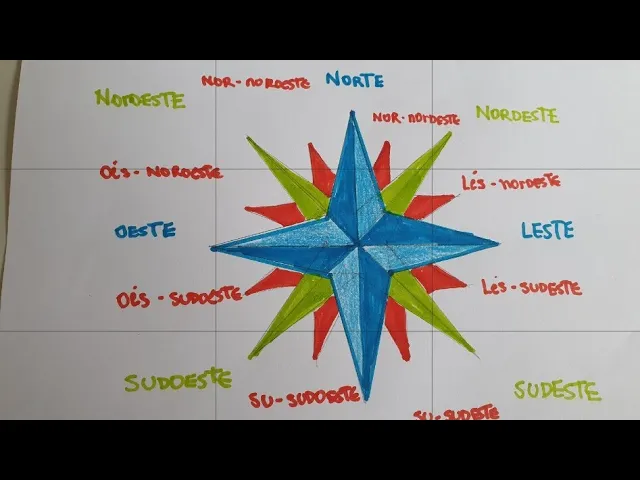 NOR-NOROESTE
NORTE
NOROESTE
NORDESTE
NOR-NORDESTE
Oés - NOROESTE
Lés-NORDESTE
OESTE
LESTE
Oés - SUDOESTE
Lés-SUDESTE
SUDOESTE
SUDESTE
SU-SUDOESTE
SU-SUDESTE